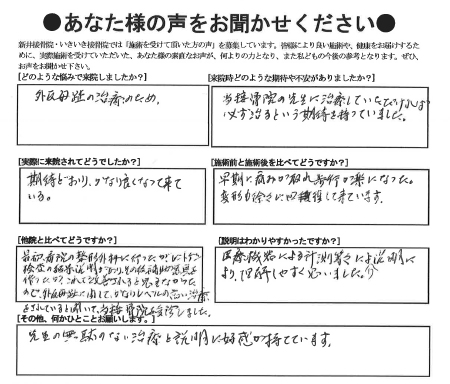 ●あなた様の声をお聞かせください●
新井接骨院・いきいき接骨院では「施術を受けて頂いた方の声」を募集しています。皆様により良い施術や、健康をお届けするために、実際施術を受けていただいた、あなた様の素直なお声が、何よりの力となり、また私どもの今後の参考となります。ぜひ、お声をお聞かせ下さい。
[どのような悩みで来院しましたか?]
外反母趾の治療のため。
[来院時どのような期待や不安がありましたか?]
当接骨院の先生に治療していただければ
必ず治るという期待を持っていました。
[実際に来院されてどうでしたか?]
期待どおり、かなり良くなって来て
いる。
[施術前と施術後を比べてどうですか?]
早期に痛みが取れ歩行が楽になった。
変形も徐々に回復して来ています。
[他院と比べてどうですか?]
病院の整形外科に行ったが
検査の結果説明があり、その後補助器具を
作ったが、これで改善されると思えなかった
ので、外反母趾に関して、かなりレベルの高い治療
をされていると聞いて、当接骨院を受診しました。
[説明はわかりやすかったですか?]
医療機器による計測等による説明に
より、理解しやすく思いました。
[その他、何かひとことお願いします。]
先生の無駄のない治療と説明に好感が持てています。